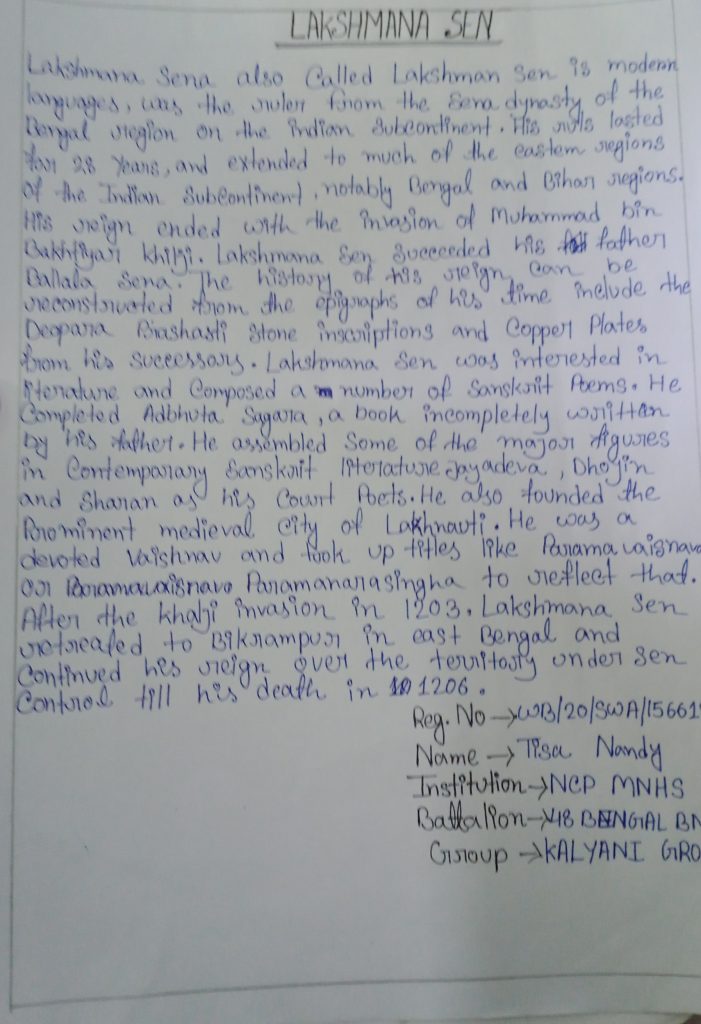 LAKSHMANA SEN
Lakshmana Sena also Called Lakshman Sen is modern
languages, was the ruler from the Sena dynasty of the
Bengal region on the Indian Subcontinent. His ruls lasted
for 28 Years, and extended to much of the eastern regions
of the Indian Subcontinent, notably Bengal and Bihar regions.
His reign ended with the invasion of Muhammad bin
Bakhtiyar khilji. Lakshmana Sen Succeeded his father
Ballala Sena. The history of his reign can be
reconstructed from the epigraphs of his time include the
Deopara Prashasti Stone inscriptions and Copper Plates
from his Successors. Lakshmana Sen was interested in
literature and Composed a number of Sanskrit Poems. He
Completed Adbhuta Sagara, a book incompletely written
by his father. He assembled Some of the major figures
in Contemporary Sanskrit literature Jayadeva, Dhoyin
and Sharan as his Court Poets. He also founded the
Prominent medieval City of Lakhnauti. He was a
devoted Vaishnav and took up titles like Paramavaisnava
or Paramavaisnava Paramanarasingha to reflect that.
After the khalji invasion in 1203, Lakshmana Sen
retreated to Bikrampur in east Bengal and
Continued his reign over the territory under Sen
Control till his death in 1206.
Reg. No → WB/20/SWA/15661
Name → Tisa Nandy
Institution → NCP MNHS
Battalion → 48 BENGAL BN
Group → KALYANI GRO